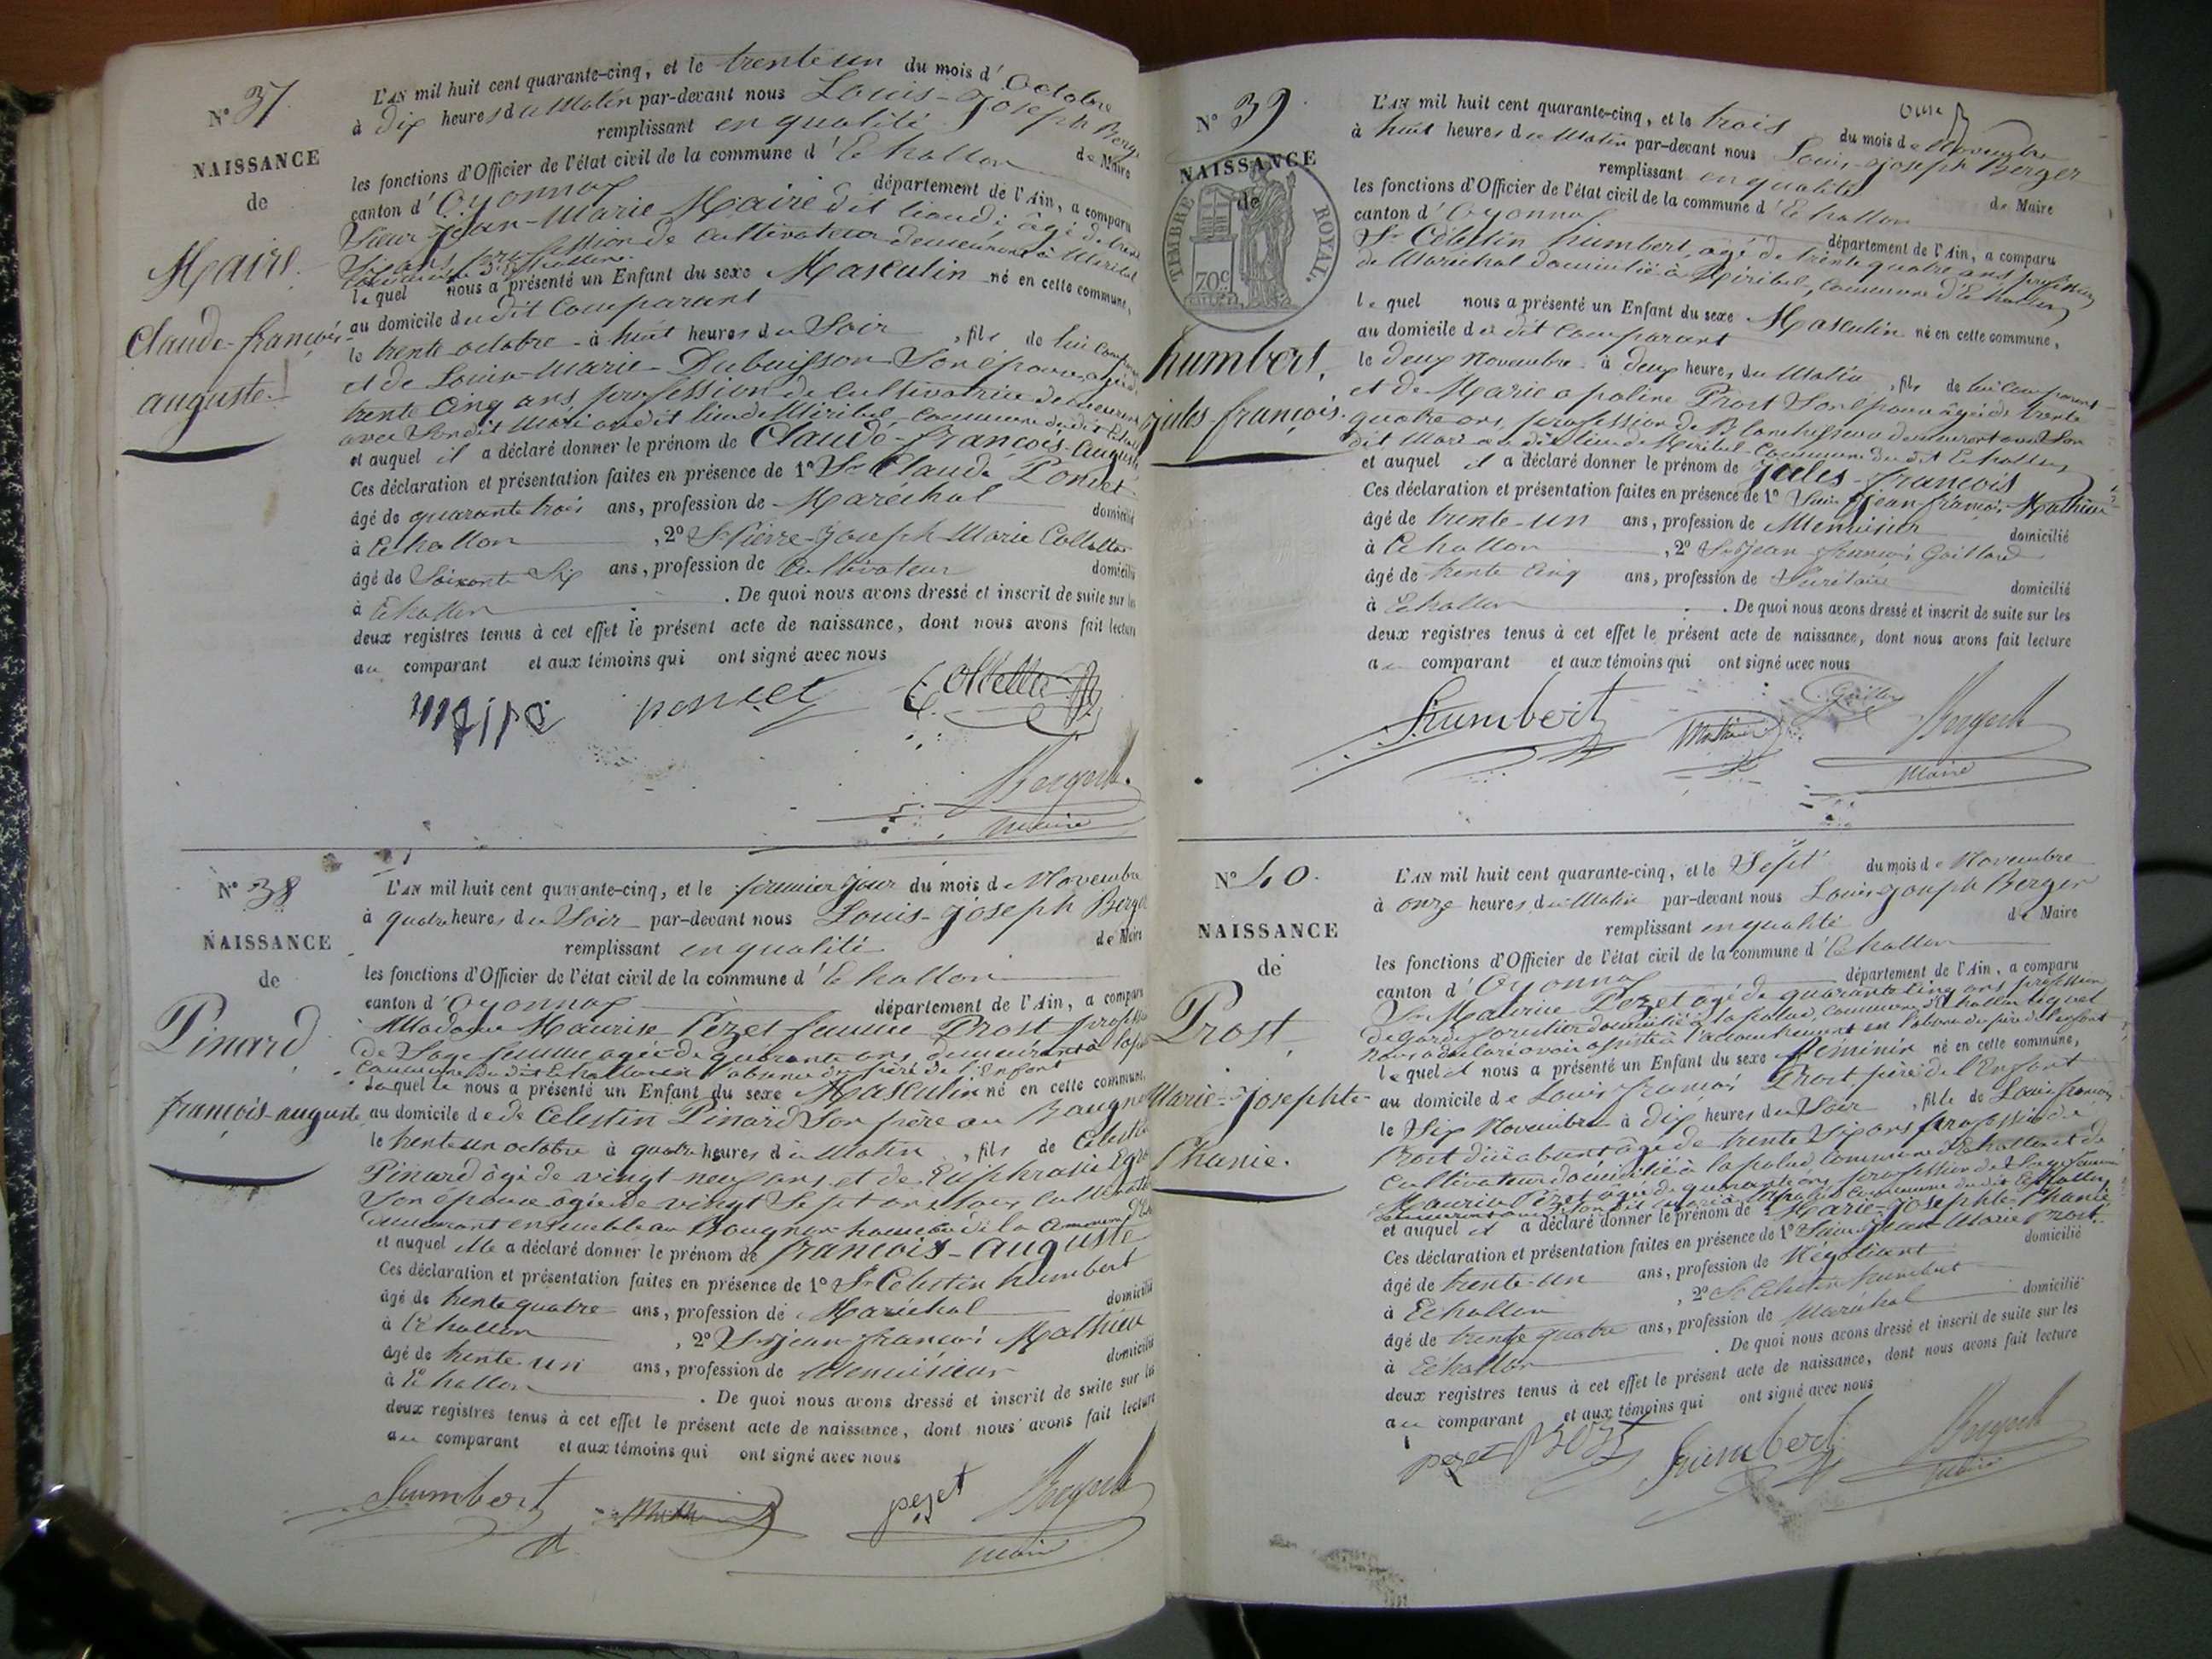 N° 37
NAISSANCE
de
Maire
Claude-françois-
auguste.
L'AN mil huit cent quarante-cinq, et le trente un du mois d'Octobre
à dix heures du Matin par-devant nous Louis-Joseph Berger
remplissant en qualité de Maire
les fonctions d'Officier de l'état civil de la commune d'Echallon
canton d'Oyonnax département de l'Ain, a comparu
Sieur Jean-Marie Maire dit liaud; âgé de trente
six ans profession de Cultivateur demeurant à Miribel
commune d'Echallon.
lequel nous a présenté un Enfant du sexe Masculin né en cette commune,
au domicile dudit Comparant
le trente octobre à huit heures du Soir, fils de lui comparant
et de Louise-Marie Dubuisson Son épouse, agée de
trente Cinq ans profession de Cultivatrice demeurant
avec Son dit Mari au dit lieu de Miribel Commune du dit Echallon
et auquel il a déclaré donner le prénom de Claude-françois-Auguste
Ces déclaration et présentation faites en présence de 1° Sr Claude Poncet
âgé de quarante trois ans, profession de Maréchal domicilié
à Echallon, 2° Sr Pierre-Joseph-Marie Collettaz
âgé de Soixante Six ans, profession de Cultivateur domicilié
à Echallon. De quoi nous avons dressé et inscrit de suite sur les
deux registres tenus à cet effet le présent acte de naissance, dont nous avons fait lecture
au comparant et aux témoins qui ont signé avec nous
poncet
Maire
N° 38
NAISSANCE
de
Pinard
françois-auguste
L'AN mil huit cent quarante-cinq, et le premier jour du mois de Novembre
à quatre heures du Soir par-devant nous Louis-Joseph Berger
remplissant en qualité de Maire
les fonctions d'Officier de l'état civil de la commune d'Echallon
canton d'Oyonnax département de l'Ain, a comparu
Madame Maurise Pézet femme Prost profession
de Sage femme agée de quarante ans, demeurant à la
commune du dit Echallon en l'absence du père de l'Enfant
laquelle nous a présenté un Enfant du sexe Masculin né en cette commune,
au domicile de Célestin Pinard Son père au Bougnon
le trente un octobre à quatre heures du Matin, fils de Célestin
Pinard âgé de vingt neuf ans, et de Euphrasie
Son épouse agée de vingt Sept ans tous
demeurant ensemble au Bougnon hameau de la Commune
et auquel elle a déclaré donner le prénom de françois-Auguste
Ces déclaration et présentation faites en présence de 1° Sr Célestin humbert
âgé de trente quatre ans, profession de Maréchal domicilié
à Echallon, 2° Sr Jean françois Mathieu
âgé de trente un ans, profession de Menuisier domicilié
à Echallon. De quoi nous avons dressé et inscrit de suite sur les
deux registres tenus à cet effet le présent acte de naissance, dont nous avons fait lecture
au comparant et aux témoins qui ont signé avec nous
humbert pezet
Maire
N° 39
NAISSANCE
de
TIMBRE ROYAL.
70c
humbert,
jules-françois.
L'AN mil huit cent quarante-cinq, et le trois du mois de Novembre
à huit heures du Matin par-devant nous Louis-Joseph Berger
remplissant en qualité de Maire
les fonctions d'Officier de l'état civil de la commune d'Echallon
canton d'Oyonnax département de l'Ain, a comparu
Sr Célestin humbert, agé de trente quatre ans profession
de Maréchal domicilié à Miribel, Commune d'Echallon
lequel nous a présenté un Enfant du sexe Masculin né en cette commune,
au domicile du dit Comparant
le deux Novembre à deux heures du Matin, fils de lui Comparant
et de Marie apoline Prost Son épouse âgée de trente
quatre ans, profession de Blanchisseuse demeurant avec Son
dit Mari au dit lieu de Miribel Commune du dit Echallon
et auquel il a déclaré donner le prénom de Jules-françois
Ces déclaration et présentation faites en présence de 1° Sieur Jean françois Mathieu
âgé de trente-un ans, profession de Menuisier domicilié
à Echallon, 2° Sr Jean françois Gaillard
âgé de trente Cinq ans, profession de Secrétaire domicilié
à Echallon. De quoi nous avons dressé et inscrit de suite sur les
deux registres tenus à cet effet le présent acte de naissance, dont nous avons fait lecture
au comparant et aux témoins qui ont signé avec nous
humbert Mathieu
Maire
N° 40.
NAISSANCE
de
Prost,
Marie-Josephte-
Phanie.
L'AN mil huit cent quarante-cinq, et le Sept du mois de Novembre
à onze heures du Matin par-devant nous Louis Joseph Berger
remplissant en qualité de Maire
les fonctions d'Officier de l'état civil de la commune d'Echallon
canton d'Oyonnax département de l'Ain, a comparu
Sr Maurice Pezet agé de quarante Cinq ans profession
de garde forestier domicilié à la palud, commune d'Echallon lequel
nous a déclaré avoir assisté à l'accouchement en l'absence du père de l'enfant
lequel il nous a présenté un Enfant du sexe féminin né en cette commune,
au domicile de Louis françois Prost père de l'Enfant
le Six Novembre à dix heures du Soir, fille de Louis françois
Prost âgé de trente Six ans profession de
Cultivateur domicilié à la palud Commune d'Echallon et de
Maurise Pezet agée de quarante ans profession de Sage femme
et auquel il a déclaré donner le prénom de Marie-Josephte-Phanie
Ces déclaration et présentation faites en présence de 1° Sieur Jean-Marie Prost
âgé de trente-un ans, profession de Négociant domicilié
à Echallon, 2° Sr Célestin humbert
âgé de trente quatre ans, profession de Maréchal domicilié
à Echallon. De quoi nous avons dressé et inscrit de suite sur les
deux registres tenus à cet effet le présent acte de naissance, dont nous avons fait lecture
au comparant et aux témoins qui ont signé avec nous
pezet prost humbert
Maire